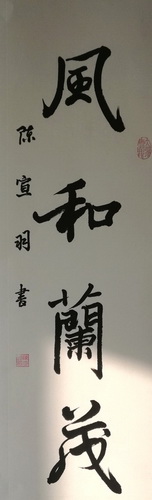 風和蘭茂
陈宣羽書